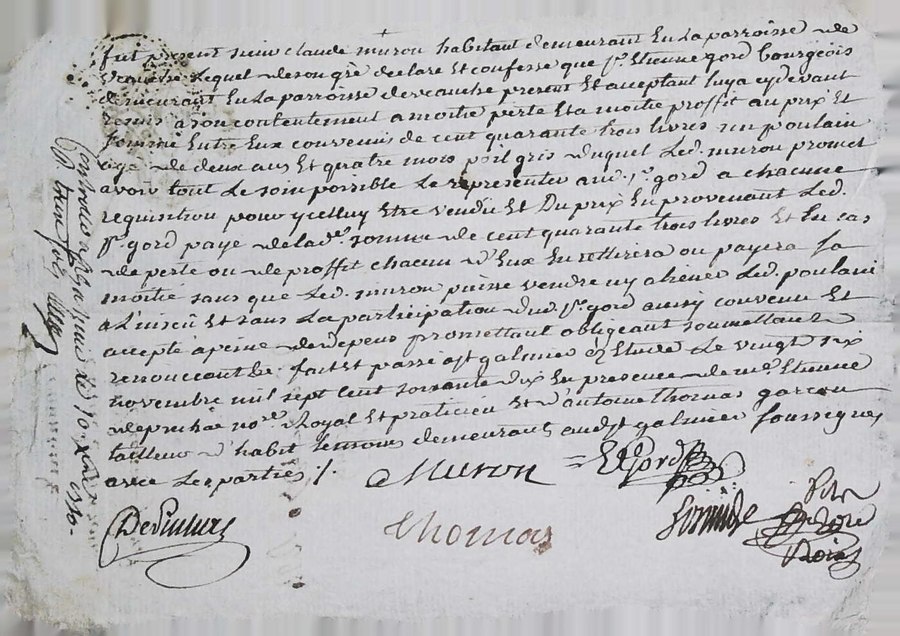 fut présent sieur claude muron habitant demeurant En La parroisse de
Veauche Lequel de son gré declare Et confesse que sr. Etienne gord bourgeois
demeurant En La parroisse de veauche present Et acceptant luy a cy devant
remis a son contentement a moitié perte Et a moitié proffit au prix Et
somme Entre Eux convenus de cent quarante trois livres un poulain
agé de deux ans Et quatre mois poil gris duquel Led. muron promet
avoir tout Le soin possible Le representer aud. sr. gord a chacune
requisition pour ycelluy Etre vendu Et Du prix En provenant Led.
sr. gord payé de lad. somme de cent quarante trois livres Et En cas
de perte ou de proffit chacun d'Eux En rettirera ou payera sa
moitié sans que Led. muron puisse vendre ny aliener Led. poulain
a L'insçu Et sans La participation dud. sr. gord aussy convenu Et
accepté a peine de depens promettant obligeant soumettant
renoncant &c. fait Et passé a st. galmier Etude Le vingt six
novembre mil sept cent soixante dix En presence de me. Etienne
nore. Royal Et praticien Et d'antoine thomas garcon
tailleur d'habit temoins demeurant aud. st. galmier soussignés
avec Les parties /.
Muron = Ete. gord
thomas
Controllé a st. galmier Le 30. 1770.